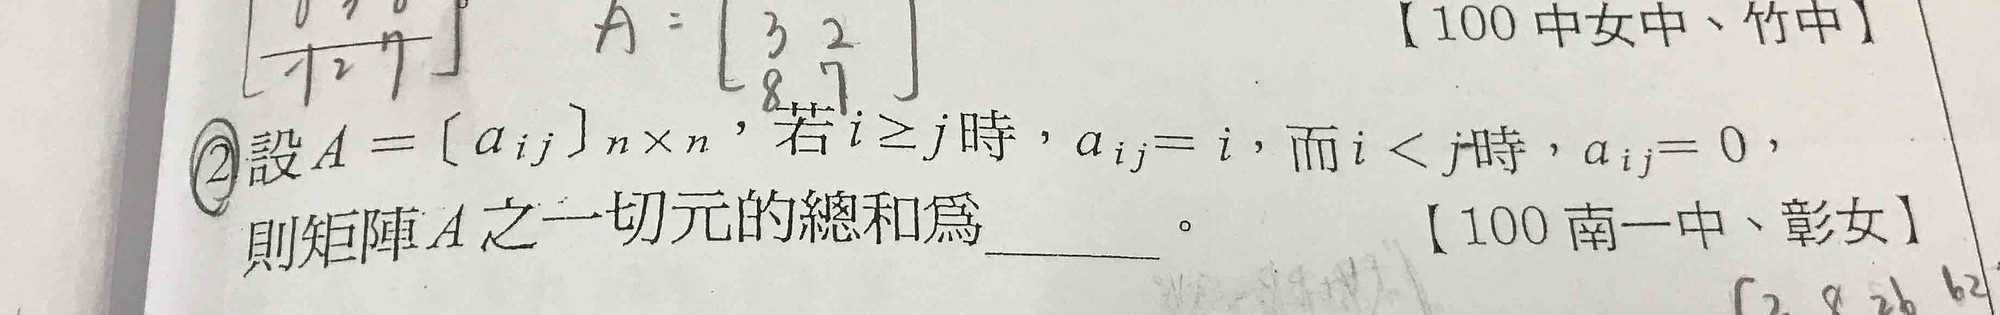 12 7
A = [ 3 2
8 7 ]
【100 中女中、竹中】
② 設 A = 〔aij〕n×n,若 i ≥ j 時,aij = i,而 i < j 時,aij = 0,
則矩陣 A 之一切元的總和為______。 【100 南一中、彰女】
[ 2 8 26 62